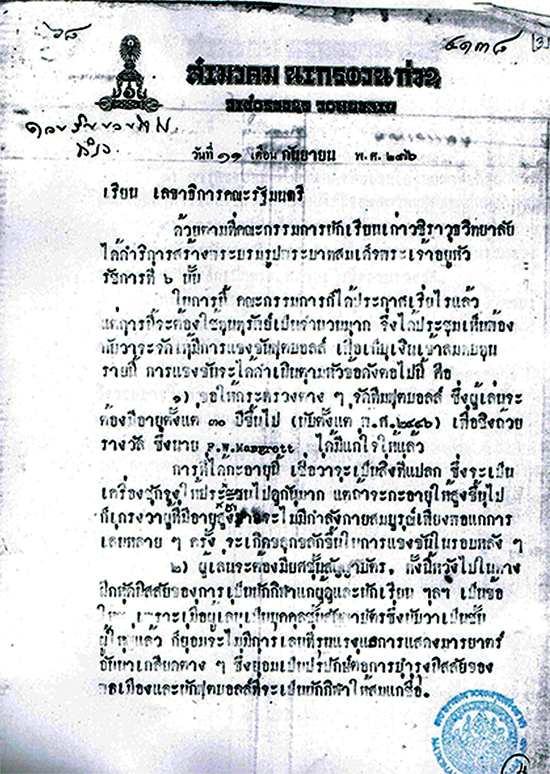 ๖๘
๕๑๓๘ [3]
สำมวคม นเกรอวน ก่วา
วันที่ ๑๑ เดือน กันยายน พ.ศ. ๒๔๗๖
เรียน เลขาธิการคณะรัฐมนตรี
ด้วยตามที่คณะกรรมการนักเรียนเก่าวชิราวุธวิทยาลัย
ได้ดำริการสร้างพระบรมรูปพระบาทสมเด็จพระเจ้าอยู่หัว
รัชการที่ ๖ นั้น
ในการนี้ คณะกรรมการก็ได้ประกาศเรี่ยไรแล้ว
แต่การนี้จะต้องใช้ทุนทรัพย์เป็นจำนวนมาก จึงได้ประชุมเห็นพ้อง
กันว่าจะจัดให้มีการแข่งขันฟุตบอลล์ เพื่อเก็บเงินเข้าสมทบทุน
รายนี้ การแข่งขันจะได้ดำเนินตามหัวข้อดังต่อไปนี้ คือ
๑) ขอให้กระทรวงต่าง ๆ จัดทีมฟุตบอลล์ ซึ่งผู้เล่นจะ
ต้องมีอายุตั้งแต่ ๓๐ ปีขึ้นไป (นับตั้งแต่ พ.ศ.๒๔๔๖) เพื่อชิงถ้วย
รางวัล ซึ่งนาย F.W.Margrett ได้มีแก่ใจให้แล้ว
การที่ได้กะอายุนี้ เชื่อว่าจะเป็นสิ่งที่แปลก ซึ่งจะเป็น
เครื่องชักจูงให้ประชาชนไปดูกันมาก แต่ถ้าจะกะอายุให้สูงขึ้นไป
ก็เกรงว่าผู้ที่มีอายุสูง จะไม่มีกำลังกายสมบูรณ์เพียงพอแก่การ
เล่นหลาย ๆ ครั้ง จะเกิดขลุกขลักขึ้นในการแข่งขันในรอบหลัง ๆ
๒) ผู้เล่นจะต้องมียศชั้นสัญญาบัตร, ทั้งนี้หวังไปในทาง
ฝึกหัดนิสสัยของการเป็นนักกีฬาแก่ผู้ดูและนักเรียน ฯลฯ เป็นข้อ
ใหญ่ เพราะเมื่อผู้เล่นเป็นบุคคลชั้นสัญญาบัตรซึ่งนับว่าเป็นชั้น
ผู้ใหญ่แล้ว ก็ย่อมจะไม่มีการเล่นที่รุนแรงและการแสดงมารยาตร์
อันน่าเกลียดต่าง ๆ ซึ่งย่อมเป็นปรปักษ์ต่อการบำรุงนิสสัยของ
พลเมืองและนักฟุตบอลล์ที่จะเป็นนักกีฬาให้สมแก่ชื่อ.